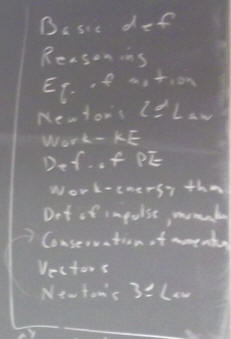 Basic def
Reasoning
Eq. of motion
Newton's 2d Law
Work-KE
Def. of PE
Work-energy thm
Def of impulse,
Conservation of
Vectors
Newton's 3d Law